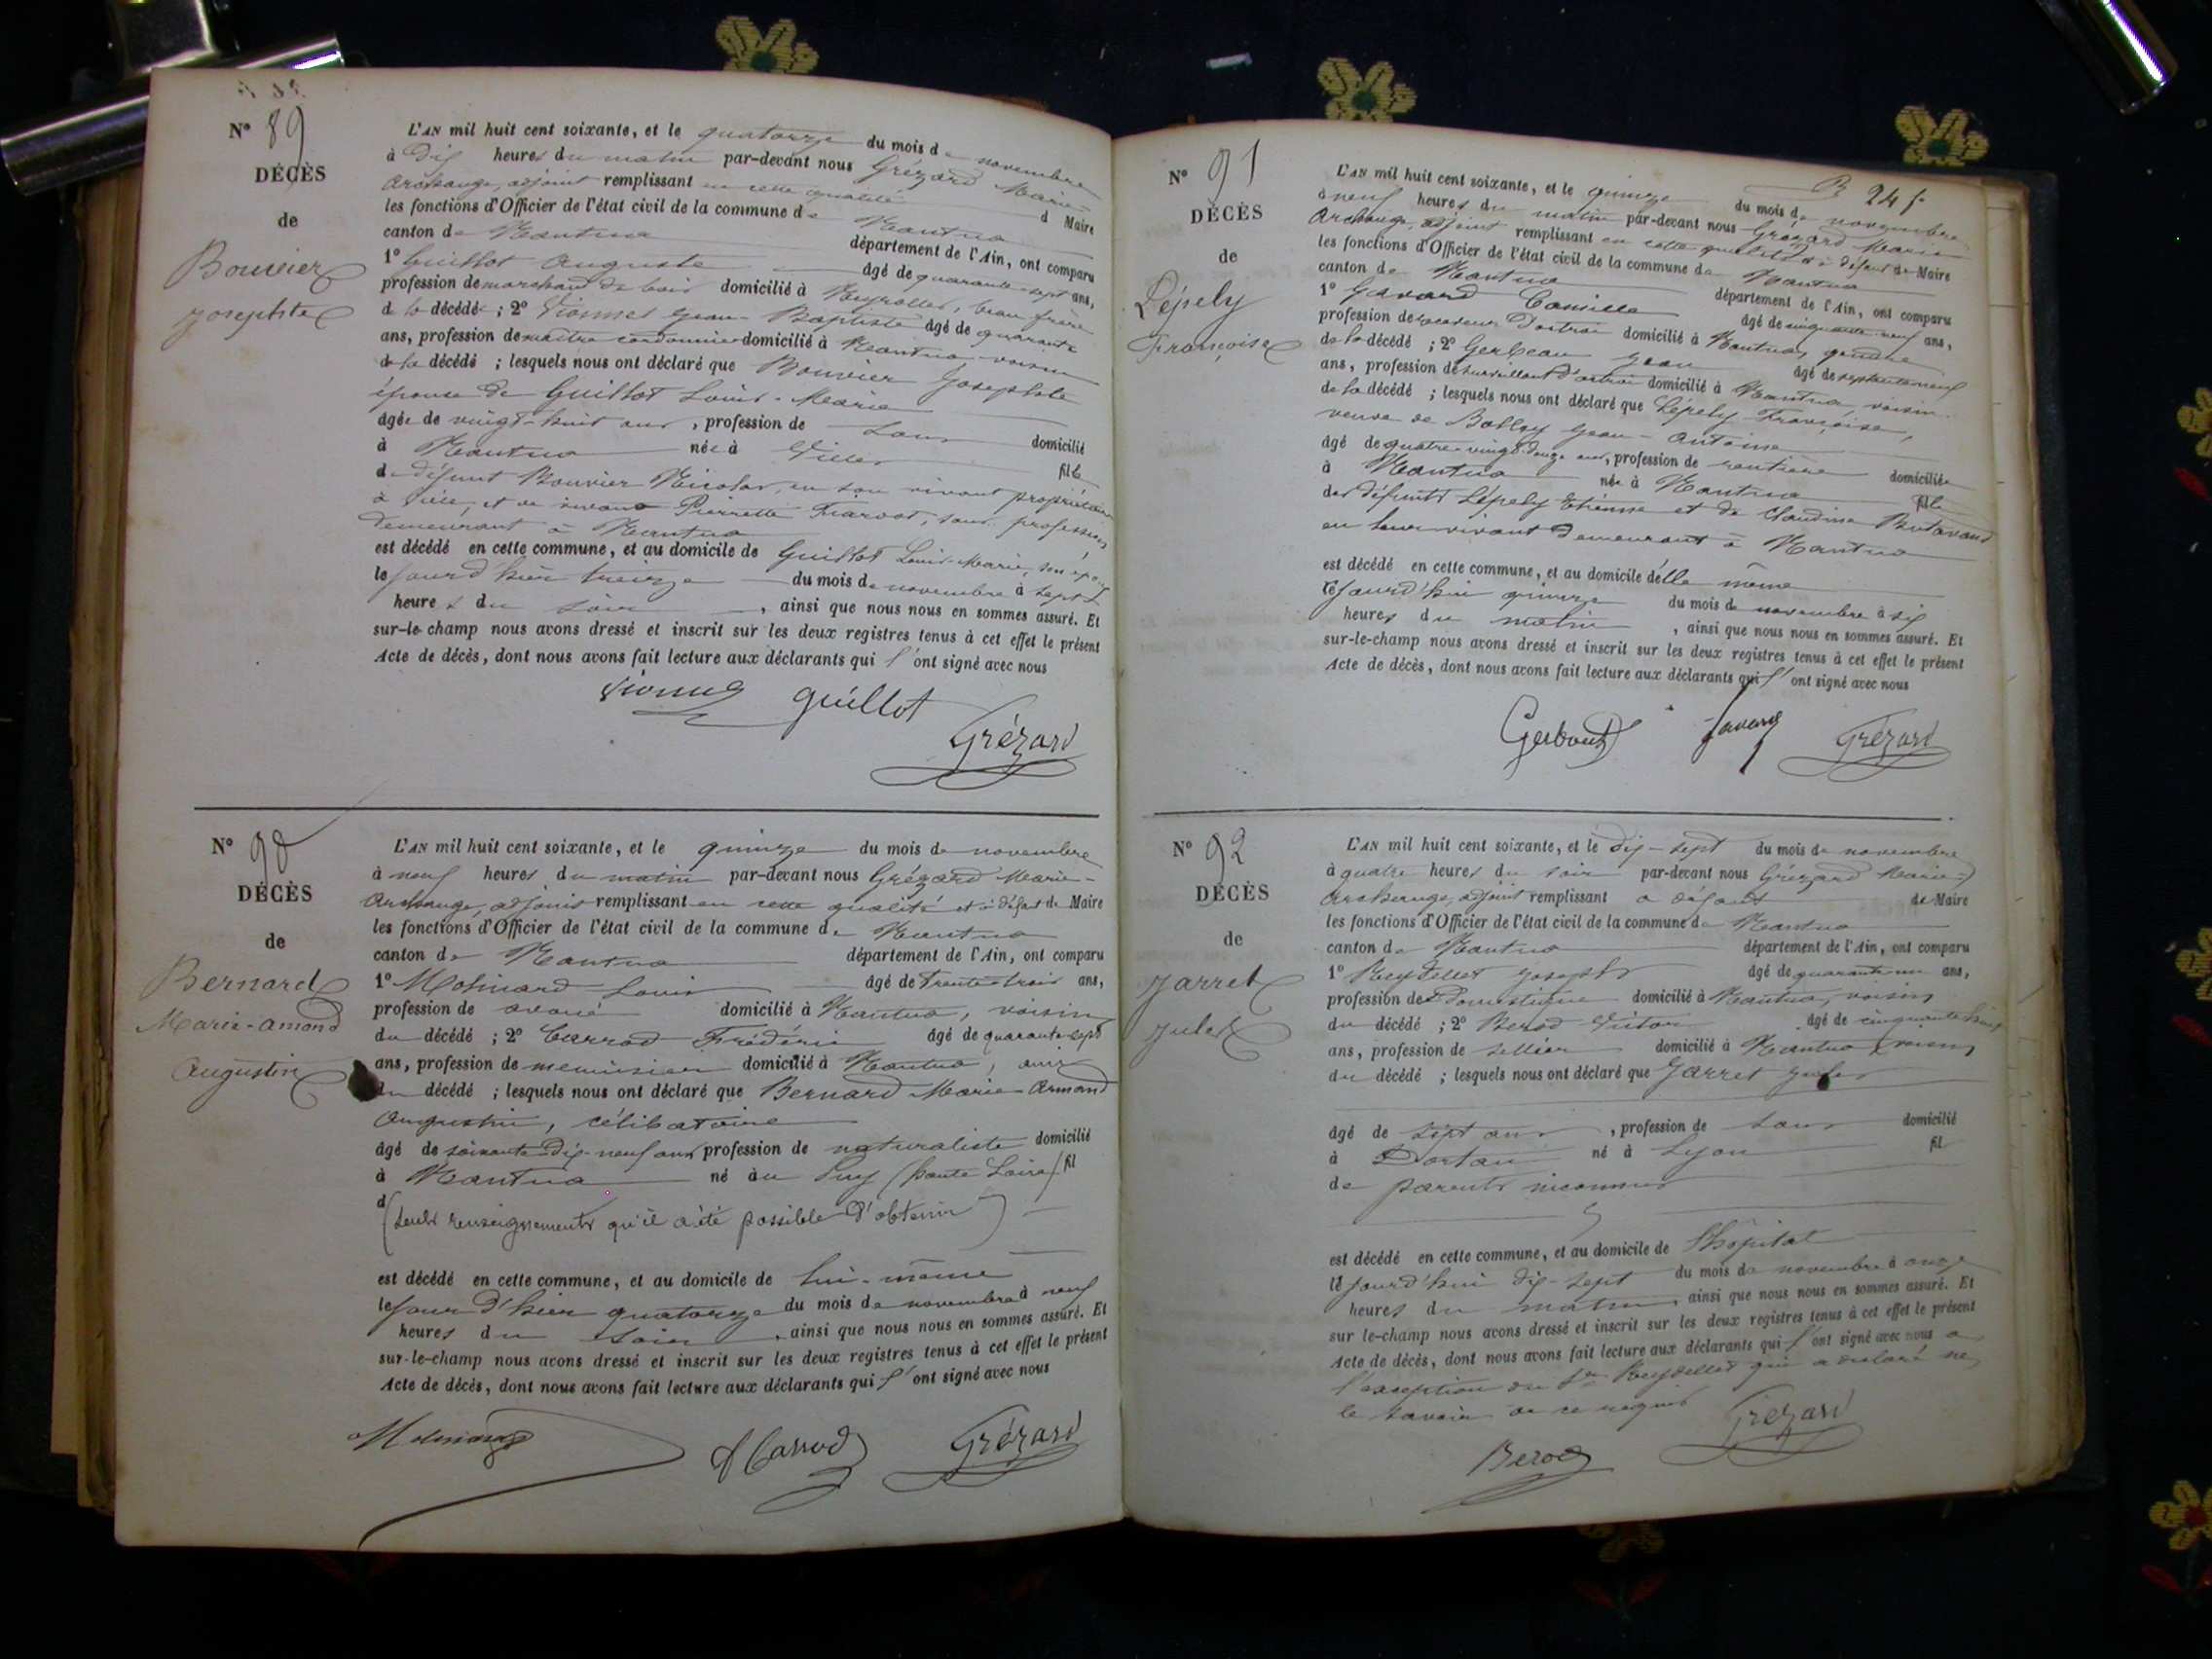 N° 89
DÉCÈS
de
Bouvier
Josephte
L'AN mil huit cent soixante, et le quatorze du mois de novembre
à dix heures du matin par-devant nous Grézard Marie-
Archange, adjoint remplissant en cette qualité d Maire
les fonctions d'Officier de l'état civil de la commune de Nantua
canton de Nantua département de l'Ain, ont comparu
1° Guillot Auguste âgé de quarante-sept ans,
profession de marchand de bois domicilié à Neyrolles, beau frère
de la décédé ; 2° Vionnet Jean-Baptiste âgé de quarante
ans, profession de maître cordonnier domicilié à Nantua voisin
de la décédé ; lesquels nous ont déclaré que Bouvier Josephte
épouse de Guillot Louis-Marie
âgée de vingt-huit ans, profession de sans domicilié
à Nantua née à fille
de défunt Bouvier Nicolas, en son vivant propriétaire
à et de vivante Pierrette sans profession
demeurant à Nantua
est décédé en cette commune, et au domicile de Guillot Louis-Marie, son époux
le jourd'hier treize du mois de novembre à sept
heures du soir, ainsi que nous nous en sommes assuré. Et
sur-le-champ nous avons dressé et inscrit sur les deux registres tenus à cet effet le présent
Acte de décès, dont nous avons fait lecture aux déclarants qui l'ont signé avec nous
guillot
Grézard
N° 90
DÉCÈS
de
Bernard
Marie-Amand
Augustin
L'AN mil huit cent soixante, et le quinze du mois de novembre
à neuf heures du matin par-devant nous Grézard Marie-
Archange, adjoint remplissant en cette qualité et à défaut de Maire
les fonctions d'Officier de l'état civil de la commune de Nantua
canton de Nantua département de l'Ain, ont comparu
1° Molinard Louis âgé de trente-trois ans,
profession de avoué domicilié à Nantua, voisin
du décédé ; 2° Carrod Frédéric âgé de quarante-sept
ans, profession de menuisier domicilié à Nantua, ami
du décédé ; lesquels nous ont déclaré que Bernard Marie-Armand
Augustin, célibataire
âgé de soixante-dix-neuf ans, profession de naturaliste domicilié
à Nantua né au Puy (haute Loire) fil
d (seuls renseignements qu'il a été possible d'obtenir)
est décédé en cette commune, et au domicile de lui-même
le jour d'hier quatorze du mois de novembre à neuf
heures du soir, ainsi que nous nous en sommes assuré. Et
sur-le-champ nous avons dressé et inscrit sur les deux registres tenus à cet effet le présent
Acte de décès, dont nous avons fait lecture aux déclarants qui l'ont signé avec nous
Molinard
Carrod
Grézard
N° 91
DÉCÈS
de
Lépely
Françoise
L'AN mil huit cent soixante, et le quinze du mois de novembre
à neuf heures du matin par-devant nous Grézard Marie
Archange, adjoint remplissant en cette qualité et à défaut de Maire
les fonctions d'Officier de l'état civil de la commune de Nantua
canton de Nantua département de l'Ain, ont comparu
1° Gavard Camille âgé de cinquante neuf ans,
profession de receveur d'octroi domicilié à Nantua, gendre
de la décédé ; 2° Jean âgé de
ans, profession de surveillant d'octroi domicilié à Nantua, voisin
de la décédé ; lesquels nous ont déclaré que Lépely Françoise,
veuve de Jean-Antoine
âgé de quatre-vingt-douze ans, profession de rentière domiciliée
à Nantua née à Nantua fille
des défunts Lépely Etienne et de Claudine
en leur vivant demeurant à Nantua
est décédé en cette commune, et au domicile d'elle même
ce jourd'hui quinze du mois de novembre à six
heures du matin, ainsi que nous nous en sommes assuré. Et
sur-le-champ nous avons dressé et inscrit sur les deux registres tenus à cet effet le présent
Acte de décès, dont nous avons fait lecture aux déclarants qui l'ont signé avec nous
Gavard
Grézard
N° 92
DÉCÈS
de
Jarret
Jules
L'AN mil huit cent soixante, et le dix-sept du mois de novembre
à quatre heures du soir par-devant nous Grézard Marie-
Archange, adjoint remplissant à défaut de Maire
les fonctions d'Officier de l'état civil de la commune de Nantua
canton de Nantua département de l'Ain, ont comparu
1° Reydellet Joseph âgé de quarante-un ans,
profession de Domestique domicilié à Nantua, voisin
du décédé ; 2° Berod Victor âgé de cinquante huit
ans, profession de sellier domicilié à Nantua, voisin
du décédé ; lesquels nous ont déclaré que Jarret Jules
âgé de sept ans, profession de sans domicilié
à Dortan né à Lyon fil
de parents inconnus
est décédé en cette commune, et au domicile de l'hôpital
le jourd'hui dix-sept du mois de novembre à onze
heures du matin, ainsi que nous nous en sommes assuré. Et
sur le-champ nous avons dressé et inscrit sur les deux registres tenus à cet effet le présent
Acte de décès, dont nous avons fait lecture aux déclarants qui l'ont signé avec nous à
l'exception du Sr Reydellet qui a déclaré ne
le savoir de ce requis
Grézard
Berod